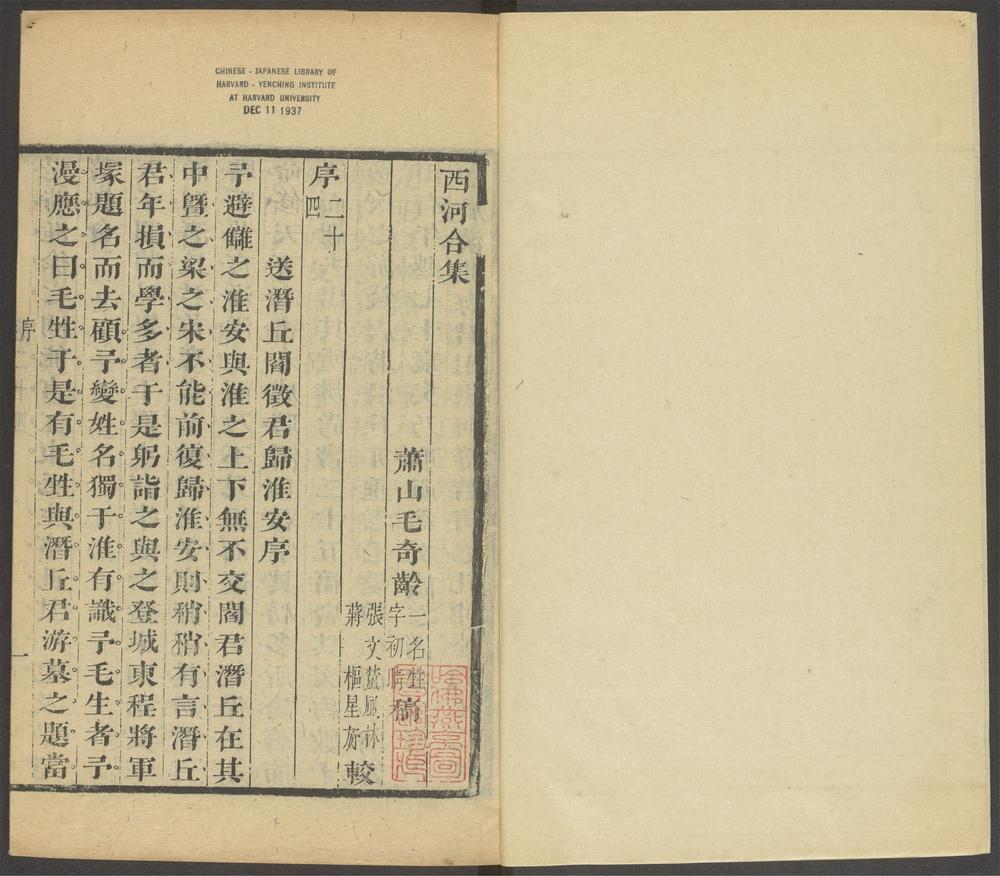 CHINESE - JAPANESE LIBRARY OF
HARVARD - YENCHING INSTITUTE
AT HARVARD UNIVERSITY
DEC 11 1937
西河合集
蕭山毛奇齡
一名甡
字初晴
稿
張文䕙風林
蔣樞星旂
較
序二十四
送潛丘閻徵君歸淮安序
予避讎之淮安與淮之上下無不交閻君潛丘在其
中曁之梁之宋不能前復歸淮安則稍稍有言潛丘
君年損而學多者于是躬詣之與之登城東程將軍
塚題名而去顧予變姓名獨于淮有識予毛生者予
漫應之曰毛甡于是有毛甡與潛丘君游墓之題當
序二十四
一